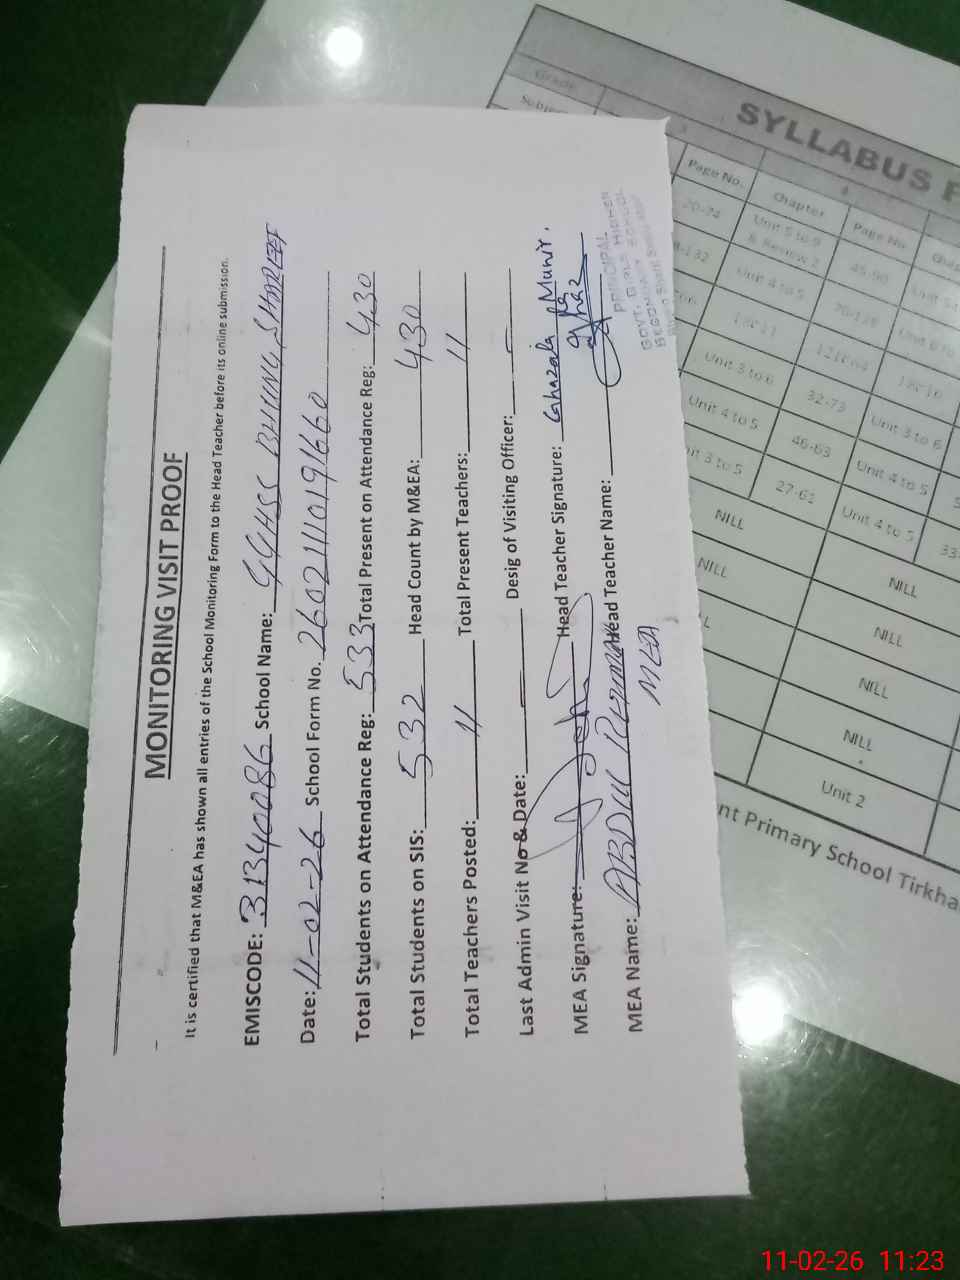 MONITORING VISIT PROOF
It is certified that M&EA has shown all entries of the School Monitoring Form to the Head Teacher before its online submission.
EMISCODE: 31340086 School Name: GGHSS BHUNG SHARIEF
Date: 11-02-26 School Form No. 26021110191660
Total Students on Attendance Reg: 533 Total Present on Attendance Reg: 430
Total Students on SIS: 532 Head Count by M&EA: 430
Total Teachers Posted: 11 Total Present Teachers: 11
Last Admin Visit No & Date: Desig of Visiting Officer:
MEA Signature: Head Teacher Signature: Ghazala Munir.
MEA Name: ABDUL REHMAN Head Teacher Name:
MEA
PRINCIPAL
GOVT. GIRLS HIGHER
SYLLABUS
Grade
Page No.
Chapter
Page No
20-74
Unit 5 to 9
& Review 2
45-90
Unit 4 to 5
Unit 3 to 6
32-73
Unit 3 to 6
Unit 4 to 5
46-63
Unit 4 to 5
27-61
Unit 4 to 5
33
NILL
NILL
NILL
NILL
NILL
NILL
Unit 2
Primary School
11-02-26 11:23